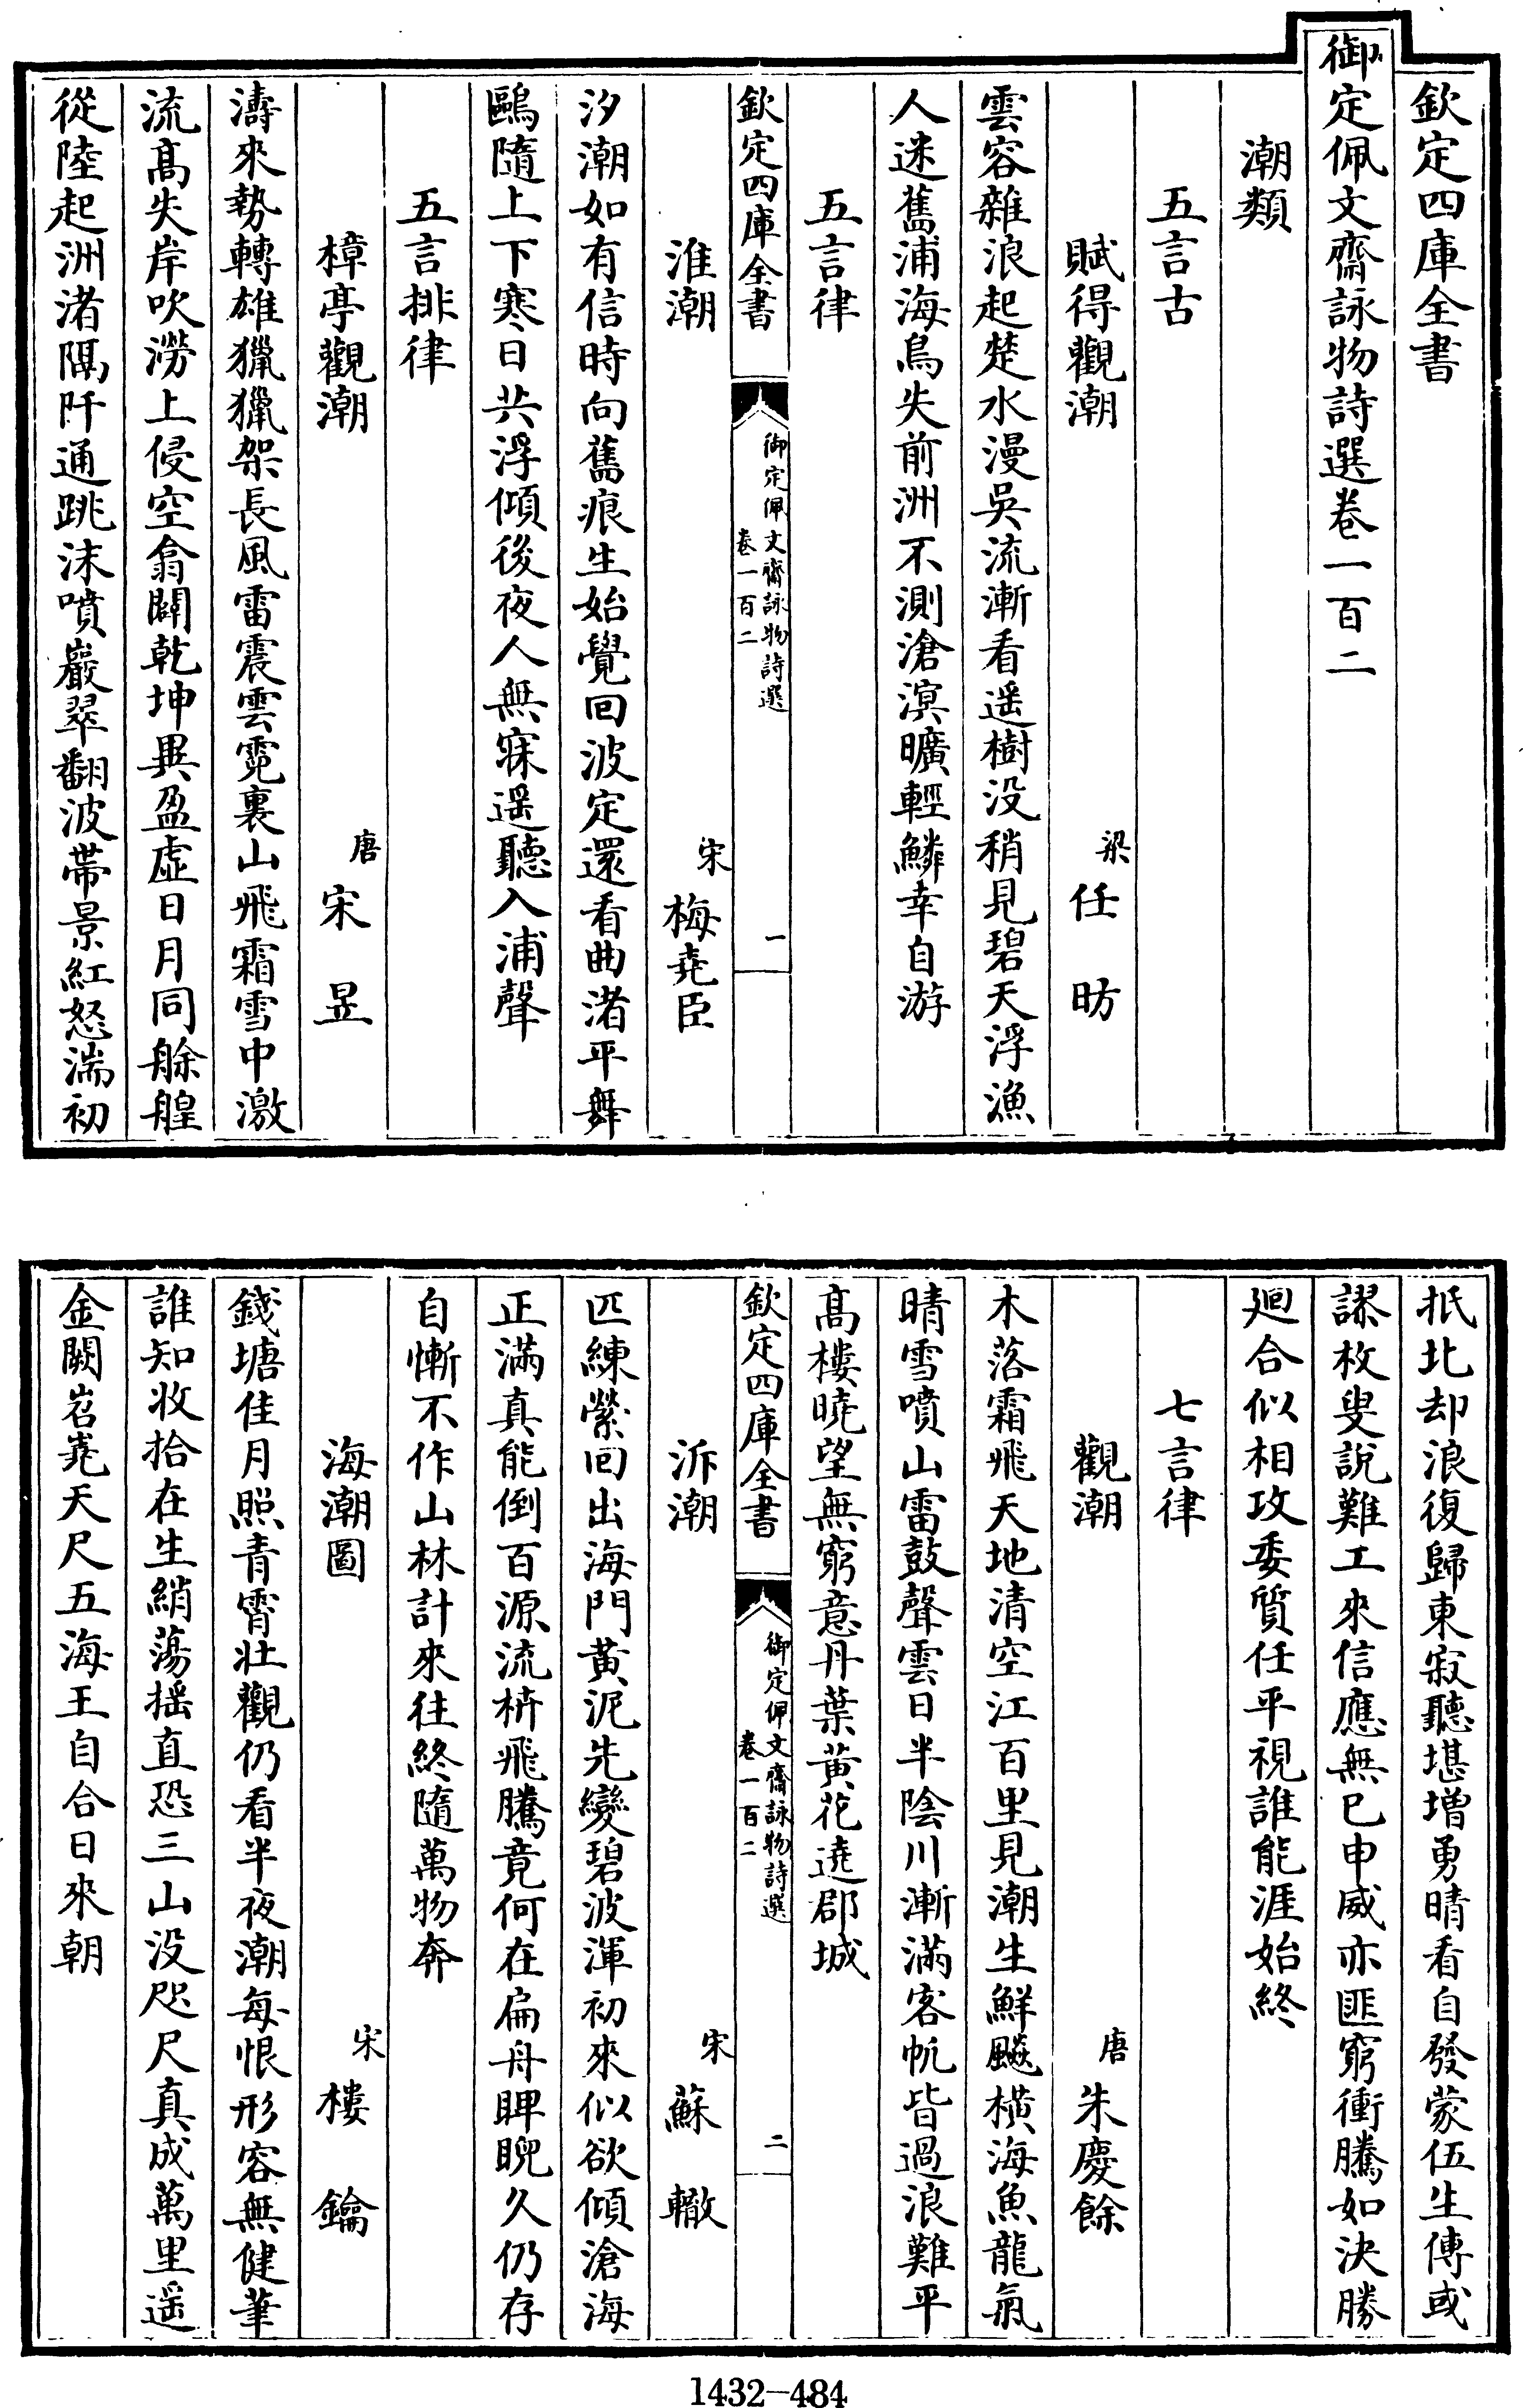 欽定四庫全書
御定佩文齋詠物詩選卷一百二
潮類
五言古
賦得觀潮　梁任　昉
雲容雜浪起楚水漫吳流漸看遥樹没稍見碧天浮漁
人迷舊浦海鳥失前洲不測滄溟曠輕鱗幸自游
五言律
欽定四庫全書　御定佩文齋詠物詩選卷一百二　一
淮潮　宋梅堯臣
汐潮如有信時向舊痕生始覺回波定還看曲渚平舞
鷗隨上下寒日共浮傾後夜人無寐遥聽入浦聲
五言排律
樟亭觀潮　唐宋　昱
濤來勢轉雄獵獵架長風雷震雲霓裏山飛霜雪中激
流高失岸吹澇上侵空翕闢乾坤異盈虛日月同艅艎
從陸起洲渚隔阡通跳沫噴巖翠翻波帶景紅怒湍初
抵北却浪復歸東寂聽堪增勇晴看自發蒙伍生傳或
謬枚叟說難工來信應無已申威亦匪窮衝騰如決勝
廻合似相攻委質任平視誰能涯始終
七言律
觀潮　唐朱慶餘
木落霜飛天地清空江百里見潮生鮮飈橫海魚龍氣
晴雪噴山雷鼓聲雲日半陰川漸滿客帆皆過浪難平
高樓曉望無窮意丹葉黃花遶郡城
欽定四庫全書　御定佩文齋詠物詩選卷一百二　二
泝潮　宋蘇　轍
匹練縈回出海門黃泥先變碧波渾初來似欲傾滄海
正滿真能倒百源流枿飛騰竟何在扁舟睥睨久仍存
自慚不作山林計來往終隨萬物奔
海潮圖　宋樓　鑰
錢塘佳月照青霄壯觀仍看半夜潮每恨形容無健筆
誰知收拾在生綃蕩搖直恐三山没咫尺真成萬里遥
金闕岧嶤天尺五海王自合日來朝
1432—484